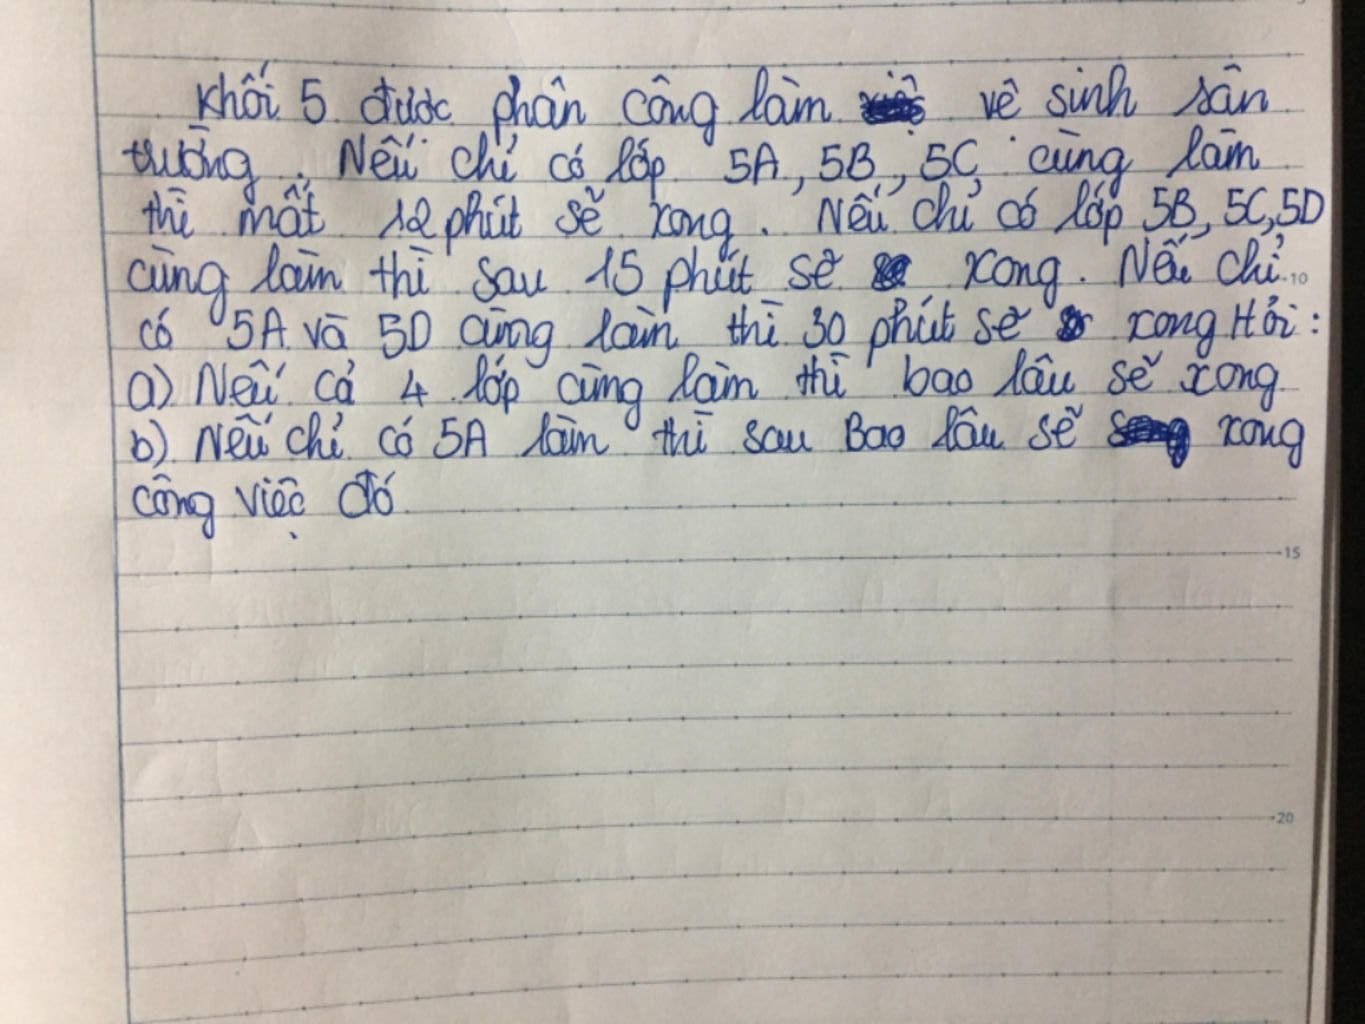 Khối 5 được phân công làm vê sinh sân
trường. Nếu chỉ có lớp 5A, 5B, 5C cùng làm
thì mất 12 phút sẽ xong. Nếu chỉ có lớp 5B, 5C, 5D
cùng làm thì sau 15 phút sẽ xong. Nếu chỉ 10
có 5A và 5D cùng làm thì 30 phút sẽ xong Hỏi:
a) Nếu cả 4 lớp cùng làm thì bao lâu sẽ xong
b) Nếu chỉ có 5A làm thì sau Bao lâu sẽ xong
công việc đó
15
20